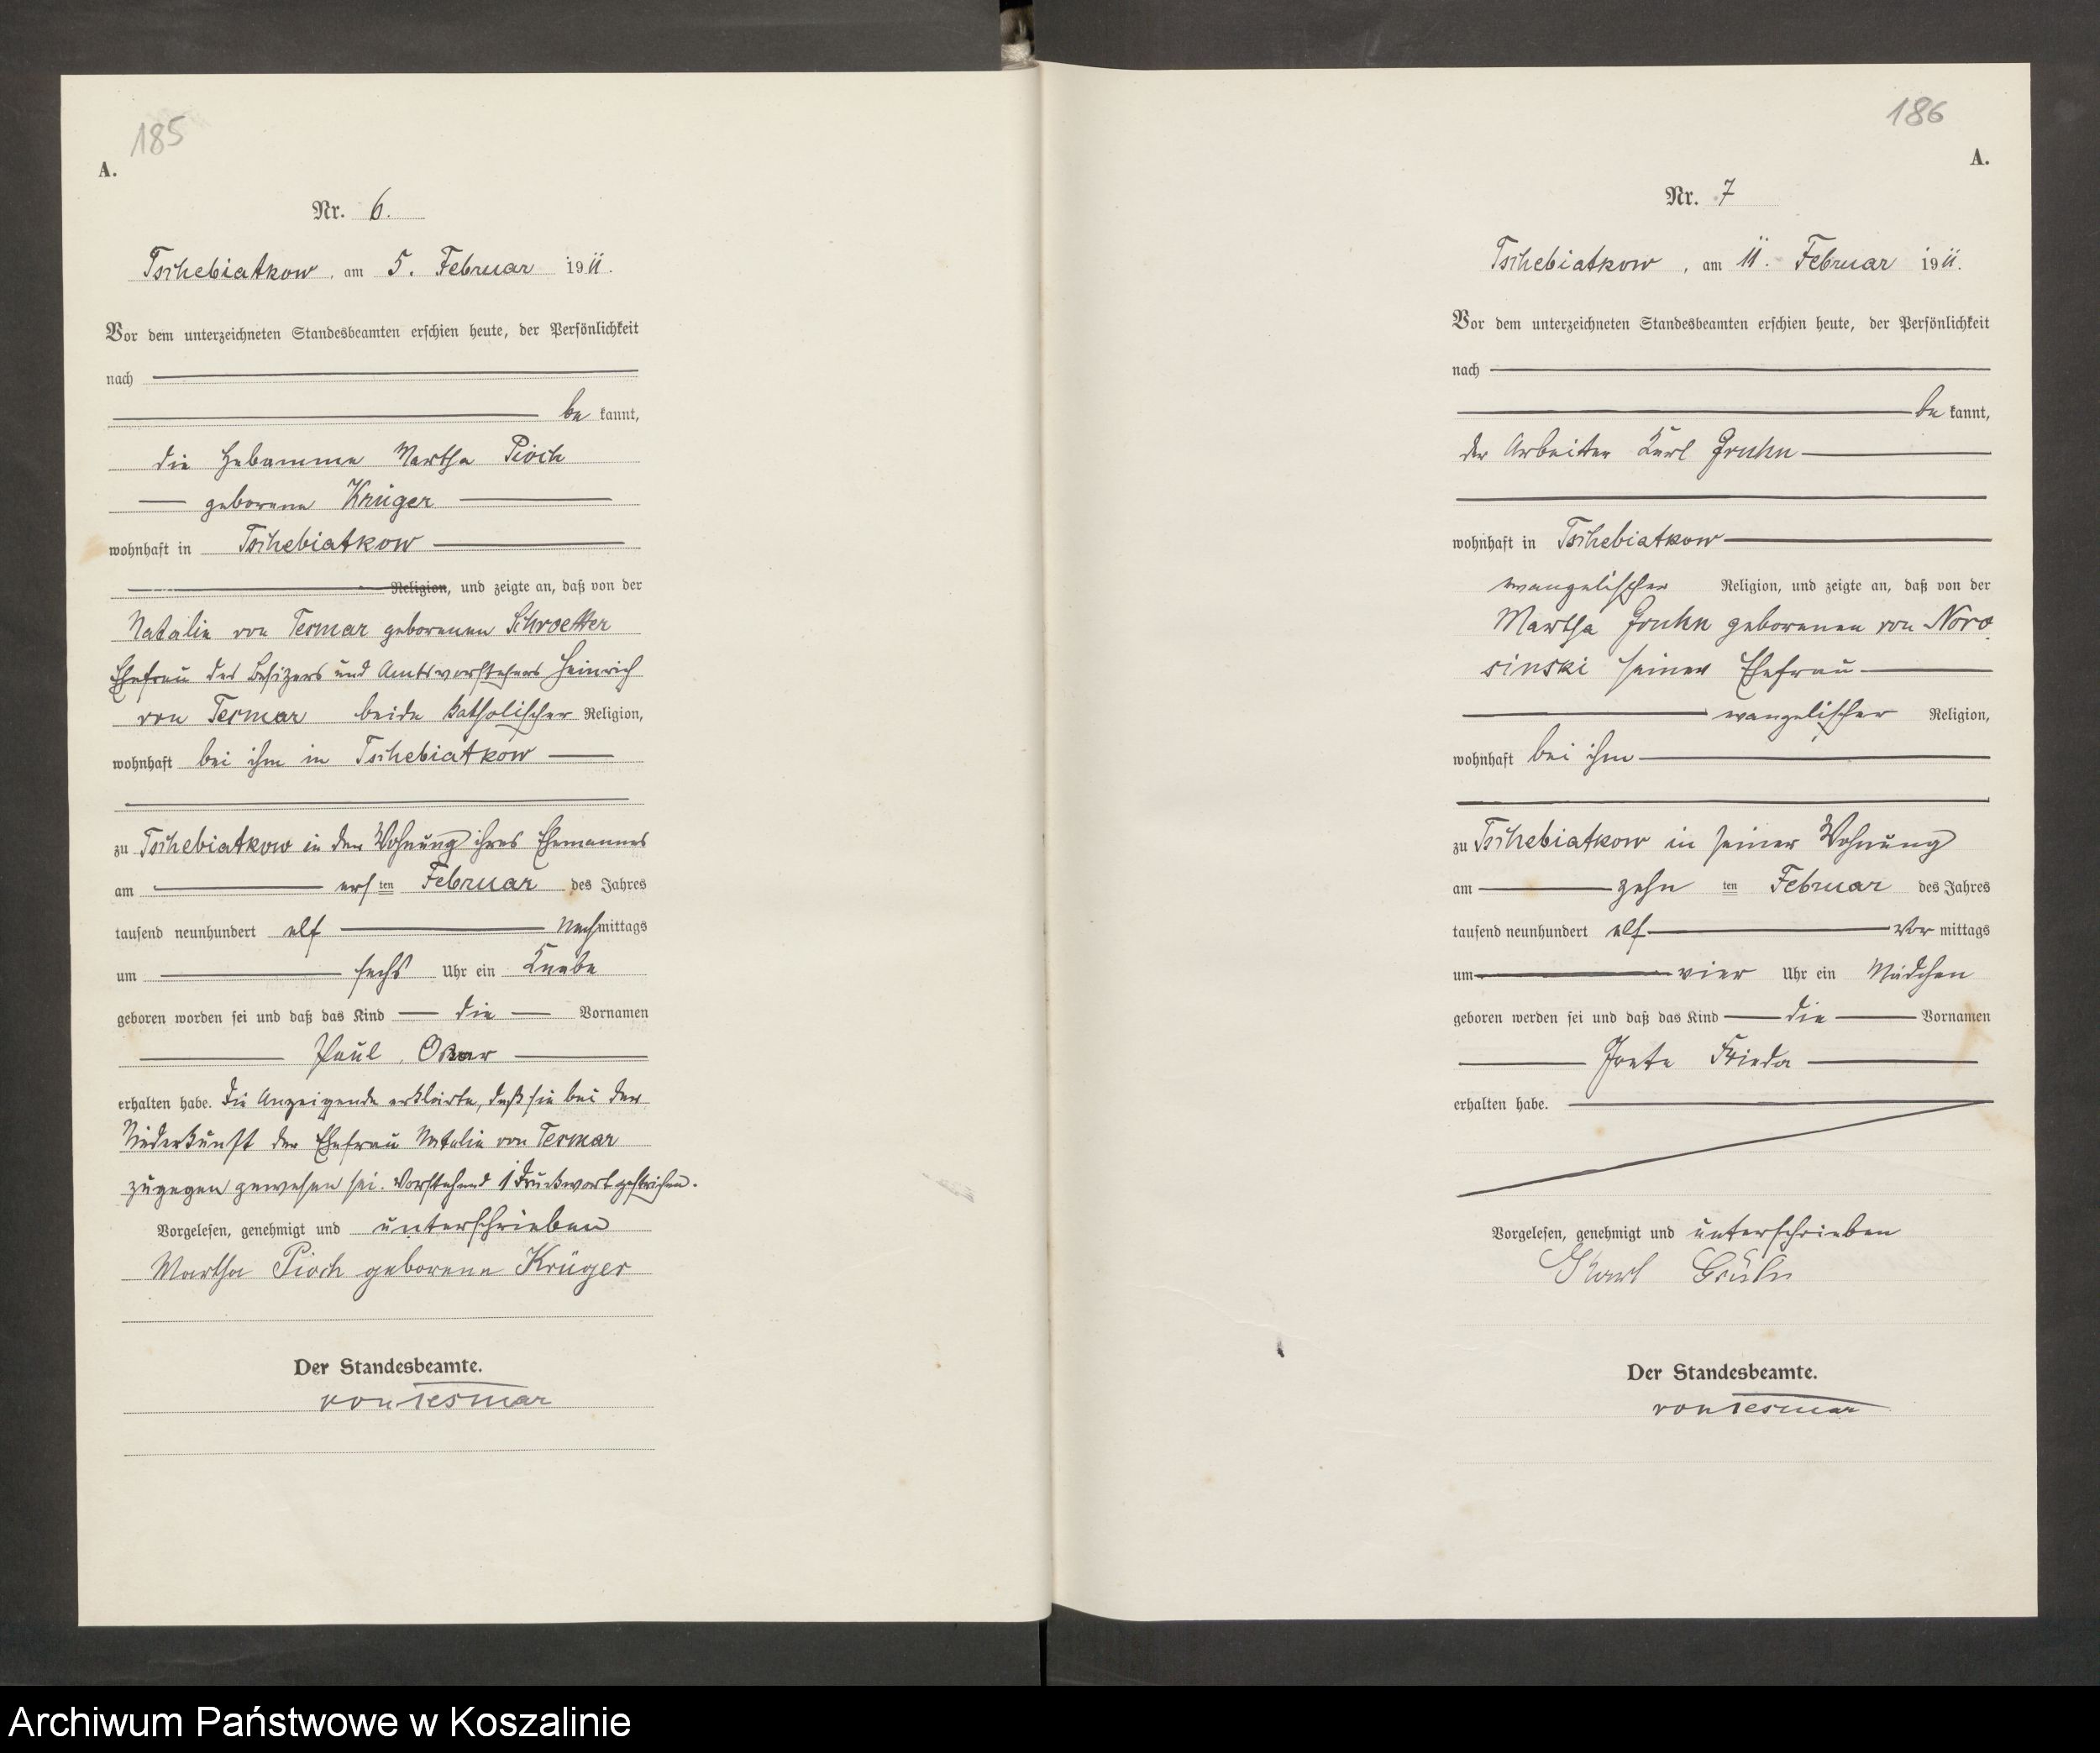 185
A.
Nr. 6.
Tschebiatkow, am 5. Februar 1911.
Vor dem unterzeichneten Standesbeamten erschien heute, der Persönlichkeit
nach
be kannt,
die Hebamme Martha Pioch
geborene Krüger
wohnhaft in Tschebiatkow
Religion, und zeigte an, daß von der
Natalie von Tesmar geborenen Schroetter
Ehefrau des Besitzers und Amtsvorstehers Heinrich
von Tesmar beide katholischer Religion,
wohnhaft bei ihm in Tschebiatkow
zu Tschebiatkow in der Wohnung ihres Ehemannes
am ersten Februar des Jahres
tausend neunhundert elf Nachmittags
um sechs Uhr ein Knabe
geboren worden sei und daß das Kind die Vornamen
Paul Oskar
erhalten habe. Die Anzeigende erklärte, daß sie bei der
Niederkunft der Ehefrau Natalie von Tesmar
zugegen gewesen sei. Vorstehend 1 Druckwort gestrichen.
Vorgelesen, genehmigt und unterschrieben
Martha Pioch geborene Krüger
Der Standesbeamte.
von Tesmar
186
A.
Nr. 7
Tschebiatkow, am 11. Februar 1911.
Vor dem unterzeichneten Standesbeamten erschien heute, der Persönlichkeit
nach
be kannt,
der Arbeiter Karl Gruhn
wohnhaft in Tschebiatkow
evangelischer Religion, und zeigte an, daß von der
Martha Gruhn geborenen von Noro
sinski seiner Ehefrau
evangelischer Religion,
wohnhaft bei ihm
zu Tschebiatkow in seiner Wohnung
am zehn ten Februar des Jahres
tausend neunhundert elf Vor mittags
um vier Uhr ein Mädchen
geboren werden sei und daß das Kind die Vornamen
Grete Frieda
erhalten habe.
Vorgelesen, genehmigt und unterschrieben
Karl Grühn
Der Standesbeamte.
von Tesmar
Archiwum Państwowe w Koszalinie